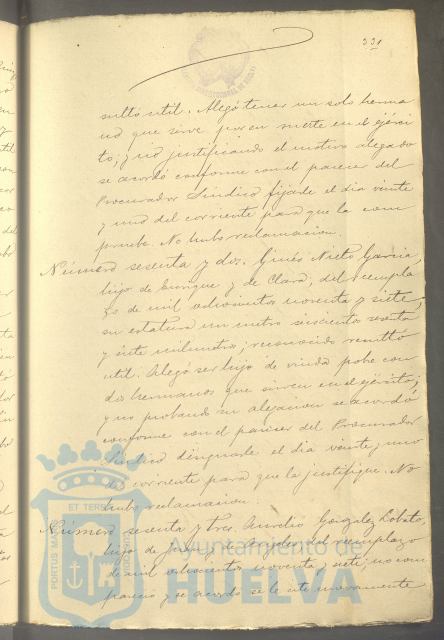 331
sultó util. Alegó tener un solo herma
no que sirve por su suerte en el ejérci
to; y no justificando el motivo alegado
se acordó conforme con el parecer del
Procurador Síndico fijarle el dia veinte
y uno del corriente para que la com
pruebe. No hubo reclamacion.
Número sesenta y dos. Ginés Nieto Garcia,
hijo de Enrique y de Clara, del reempla
zo de mil ochocientos noventa y siete;
su estatura un metro seiscientos sesenta
y siete milimetros; reconocido resultó
util. Alegó ser hijo de viuda pobre con
dos hermanos que sirven en el ejército;
y no probando su alegacion se acordó
conforme con el parecer del Procurador
Síndico designarle el dia veinte y uno
del corriente para que la justifique. No
hubo reclamacion.
Número sesenta y tres. Aurelio Gonzalez Lobato,
hijo de Juan y de del reemplazo
de mil ochocientos noventa y siete; no com
pareció y se acordó se le cite nuevamente
PORTUS
ET TERR
Ayuntamiento de
HUELVA